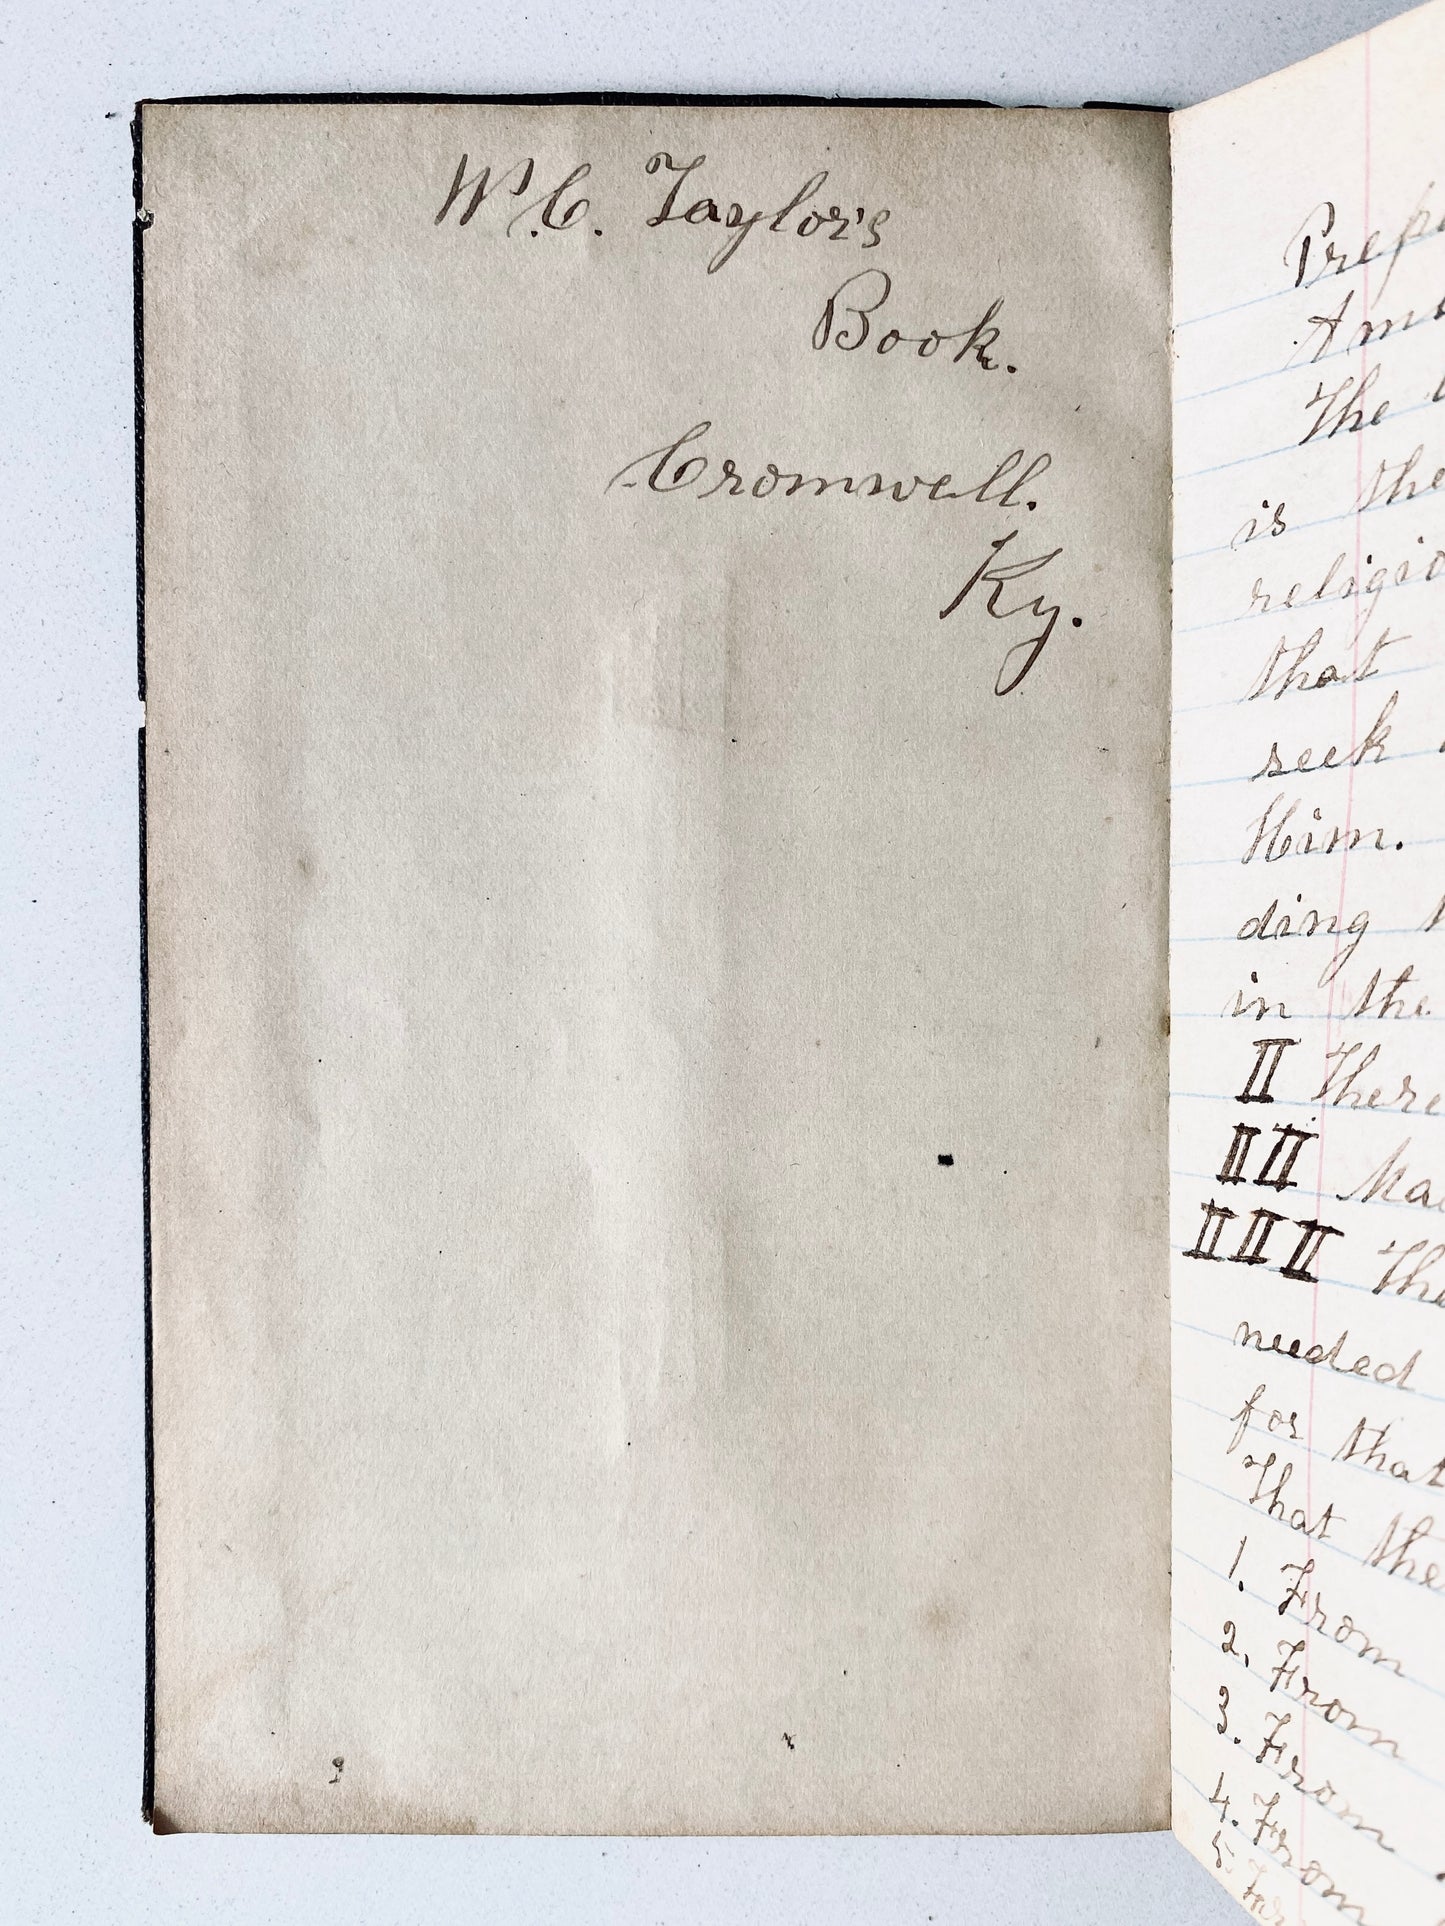 W.C. Taylor's
Book.
Cromwell.
Ky.
Prep
Am
The
is the
religio
that
seek
Him.
ding
in the
II There
II II Ma
II II II The
needed
for that
That the
1. From
2. From
3. From
4. From
5.